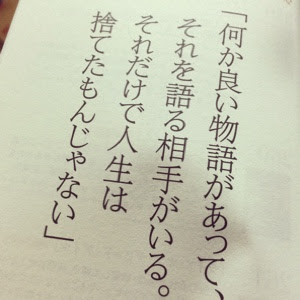 「何か良い物語があって、
それを語る相手がいる。
それだけで人生は
捨てたもんじゃない」